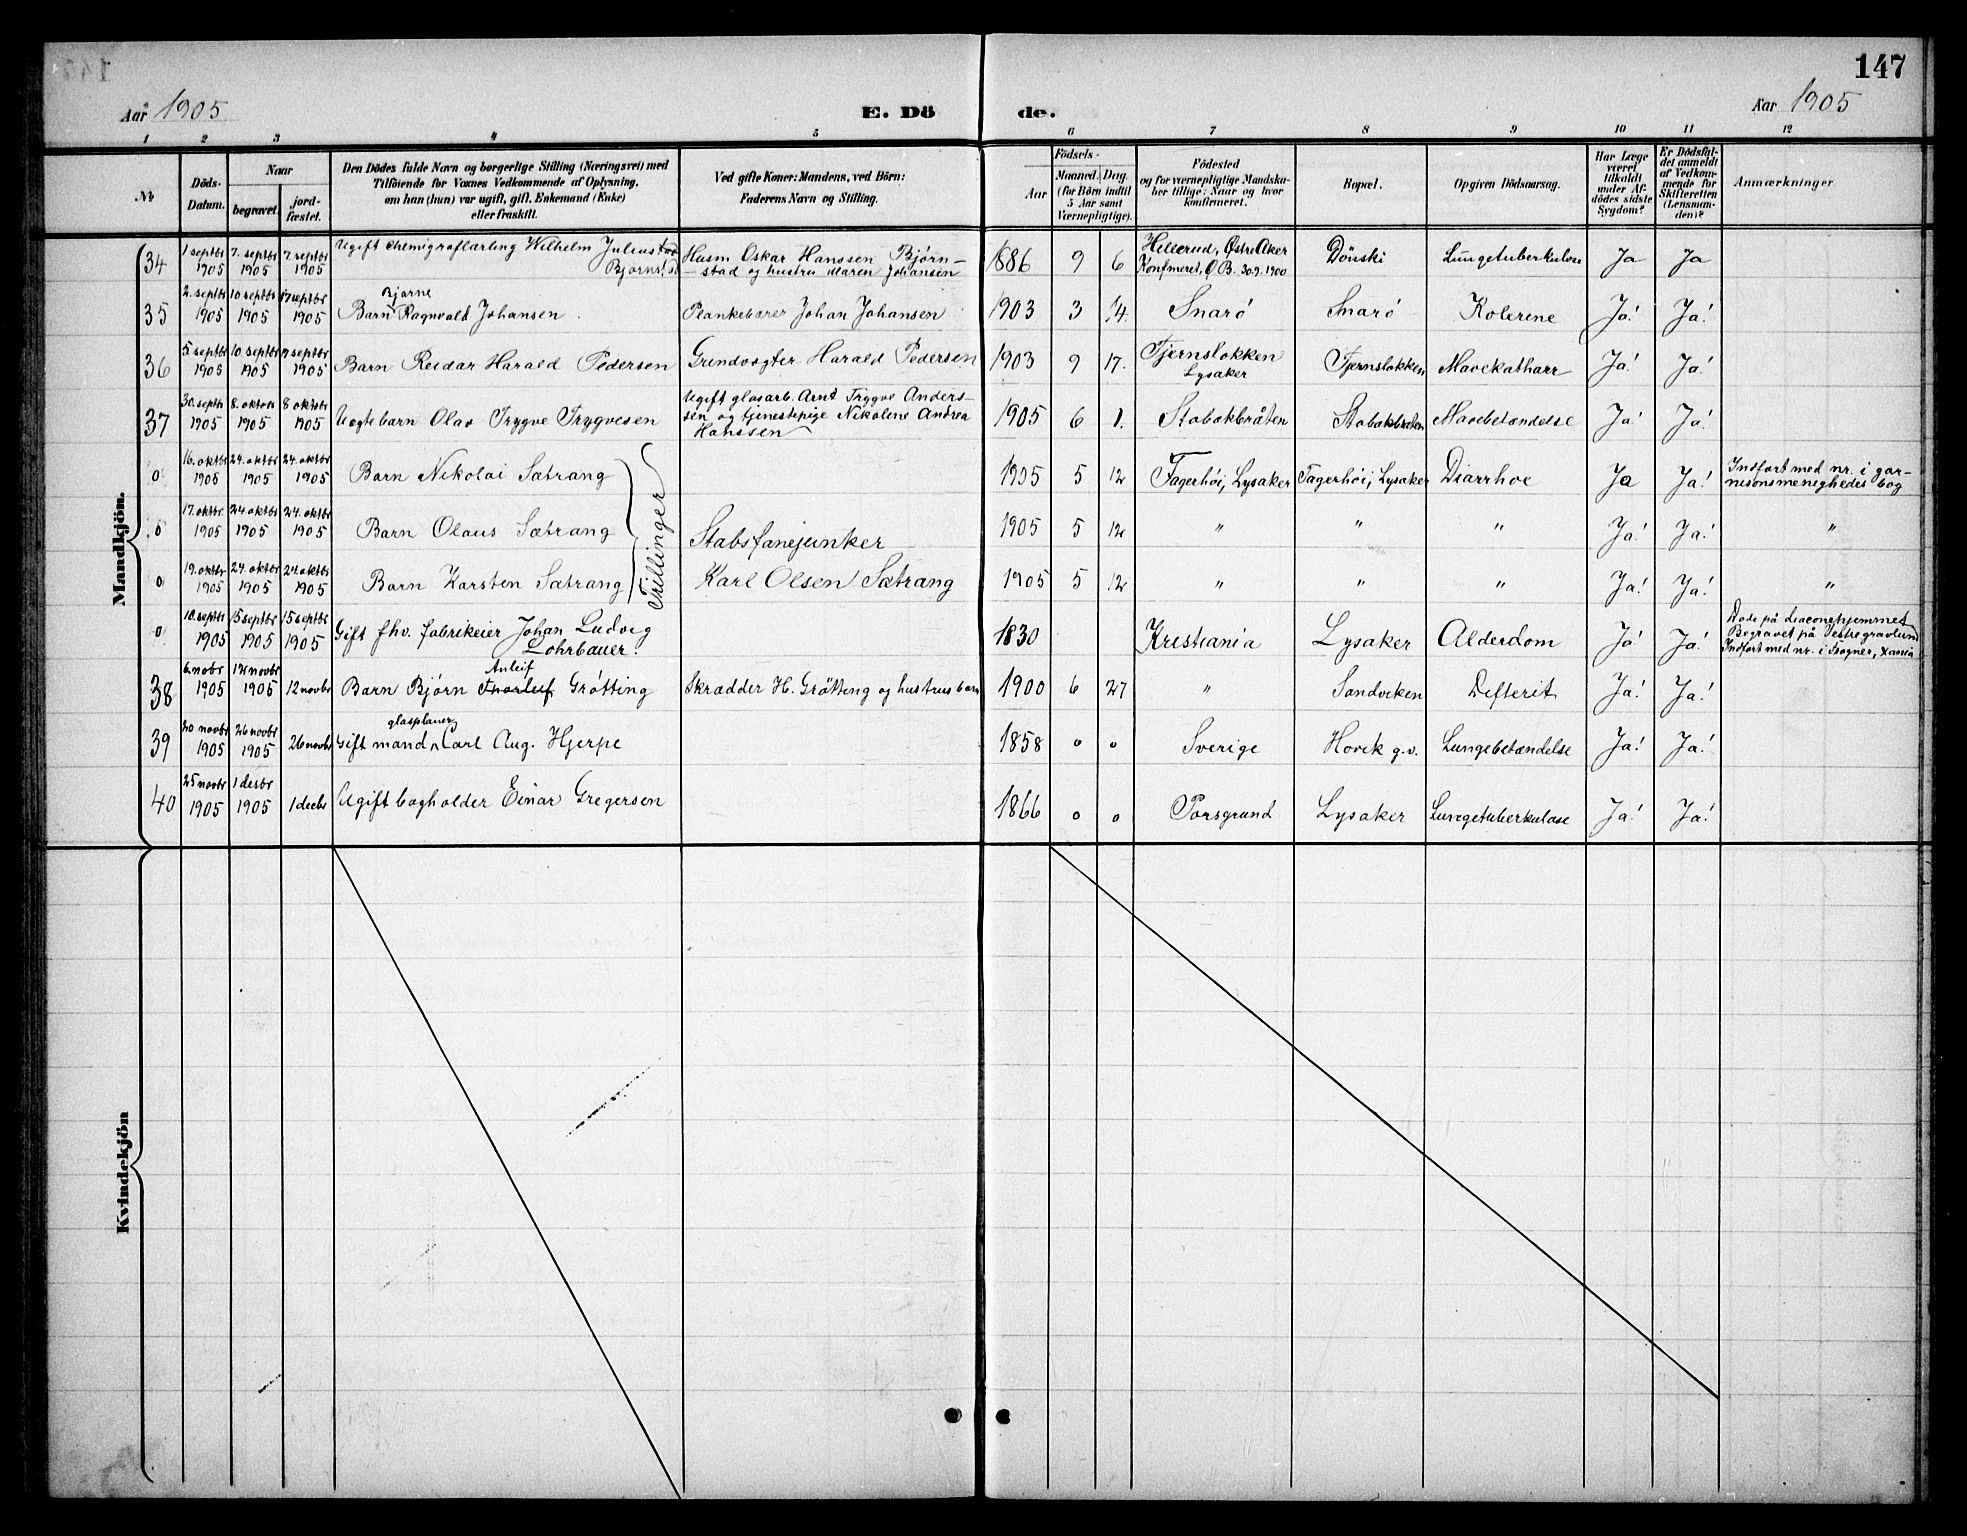 147
Aar 1905 E. Dö
de. Aar 1905
1 2 3 4 5 6 7 8 9 10 11 12
No
Döds-
Datum.
Naar
begravet.
jord-
fæstet.
Den Dödes fulde Navn og borgerlige Stilling (Næringsvei) med
Tilföiende for Voxnes Vedkommende af Oplysning,
om han (hun) var ugift, gift, Enkemand (Enke)
eller fraskilt.
Ved gifte Koner: Mandens, ved Börn:
Faderens Navn og Stilling.
Födsels-
Aar
Maaned. Dag.
(for Börn indtil
5 Aar samt
Værnepligtige).
Födested
og for værnepligtige Mandska-
ber tillige: Naar og hvor
konfirmeret.
Bopæl.
Opgiven Dödsaarsag.
Har Læge
været
tilkaldt
under Af-
dödes sidste
Sygdom?
Er Dödsfal-
det anmeldt
af Vedkom-
mende for
Skifteretten
(Lensman-
den)?
Anmærkninger
Mandkjön.
34 1 septbr 1905 7. septbr 1905 7. septbr 1905 Ugift chemigraflærling Wilhelm Julius Bjørnstad Husm Oskar Hanssen Bjørn-
stad og hustru Maren Johansen 1886 9 6 Hellerud, Østre Aker
Konfmeret, Ø B. 30.9.1900 Dönski Lungetuberkulose Ja Ja
35 2. septbr 1905 10 septbr 1905 17 septbr 1905 Barn Bjarne Ragnvald Johansen Plankebærer Johan Johansen 1903 3 14. Snarö Snarö Kolerine Ja! Ja!
36 5 septbr 1905 10 septbr 1905 septbr 1905 Barn Reidar Harald Pedersen Grindvogter Harald Pedersen 1903 9 17. Tjernslokken
Lysaker Tjernslokken Mavekatharr Ja! Ja!
37 30. septbr 1905 8. oktobr 1905 8 oktobr 1905 Uægtebarn Olav Trygve Trygvesen Ugift glasarb. Arnt Trygve Anders-
sen og tjenestepige Nikoline Andrea
Hanssen 1905 6 1. Stabækbråten Stabækbråten Mavebetændelse Ja! Ja!
0 16. oktbr 1905 24. oktbr 1905 24. oktbr 1905 Barn Nikolai Sætrang 1905 5 12 Fagerhöi, Lysaker Fagerhöi, Lysaker Diarrhoe Ja Ja! Indfört med nr. i gar-
nisonsmenighedes bog
0 17. oktbr. 1905 24 oktbr 1905 24. oktbr 1905 Barn Olaus Sætrang Stabsfanejunker 1905 5 12 " " " Ja! Ja! "
0 19. oktbr 1905 24. oktbr 1905 24 oktbr 1905 Barn Karsten Sætrang Karl Olsen Sætrang 1905 5 12 " " " Ja! Ja! "
Trillinger
0 10. septbr 1905 15 septbr 1905 15 septbr 1905 Gift fhv. fabrikeier Johan Ludvig
Lohrbauer. 1830 Kristiania Lysaker Alderdom Ja! Ja! Døde på diaconehjemmet
Begravet på Vestre gravlund
Indfört med nr. i Frogner, Xania
38 6. novbr 1905 12 novbr 1905 12 novbr Barn Bjørn Anleif Thorleif Grötting Skrædder H. Grötting og hustrus barn 1900 6 27 " Sandviken Difterit Ja! Ja!
39 20 novbr 1905 26 novbr 1905 26 novbr Gift mand glasplaner Carl Aug. Hjerpe 1858 0 0 Sverige Hövik g.v. Lungebetændelse Ja! Ja!
40 25 novbr 1905 1 desbr 1905 1 decbr Ugift bogholder Einar Gregersen 1866 0 0 Porsgrund Lysaker Lungetuberkulose Ja! Ja!
Kvindekjön